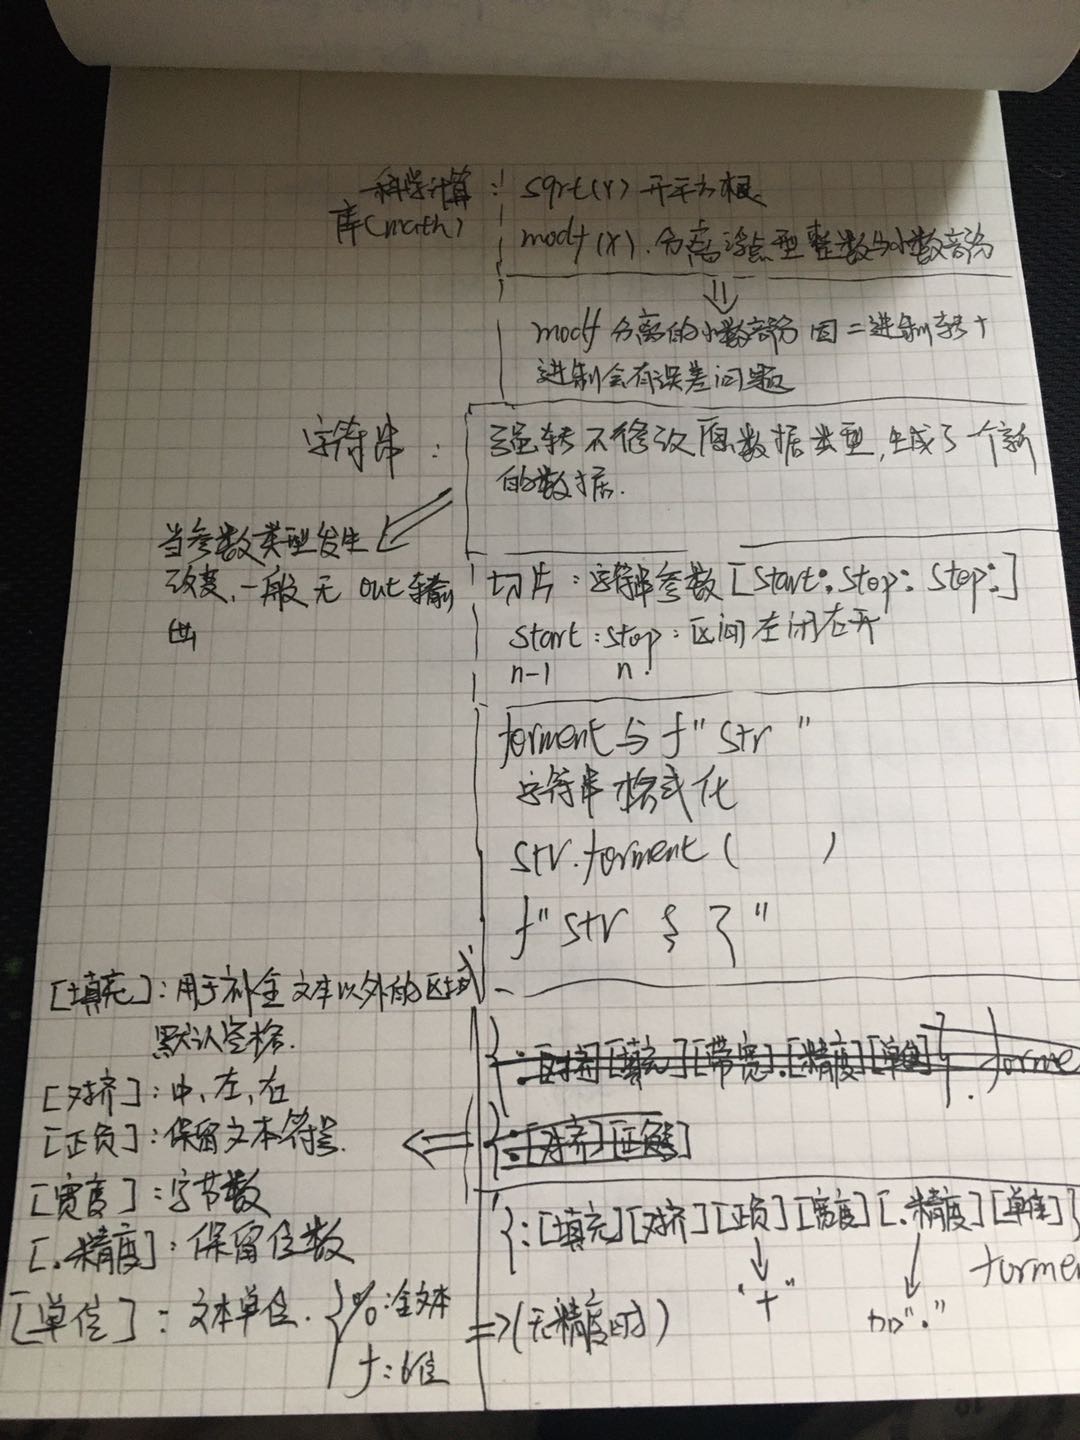 科学计算 : sqrt(x) 开平方根
库(math)
modf(x). 分离浮点型整数与小数部分
⇓
modf 分离的小数部分因二进制转十
进制会有误差问题
字符串 : 强转不修改原数据类型,生成了一个新
的数据.
当参数类型发生
改变,一般无 out 输
出
切片 : 字符串参数 [start: stop: step:]
start : stop : 区间左闭右开
n-1 n
forment 与 f" str "
字符串格式化
str.forment ( )
f" str { } "
[填充] : 用于补全文本以外的区域
默认空格.
[对齐] : 中、左、右
[正负] : 保留文本符号.
[宽度] : 字节数
[.精度] : 保留位数
[单位] : 文本单位. { % : 全文本
f : 6位
=> (无精度时)
{:[对齐][填充][带宽].[精度][单位]}. forme
{:[对齐][正负]
{:[填充][对齐][正负][宽度][.精度][单位]}
forme
"+"
加"."